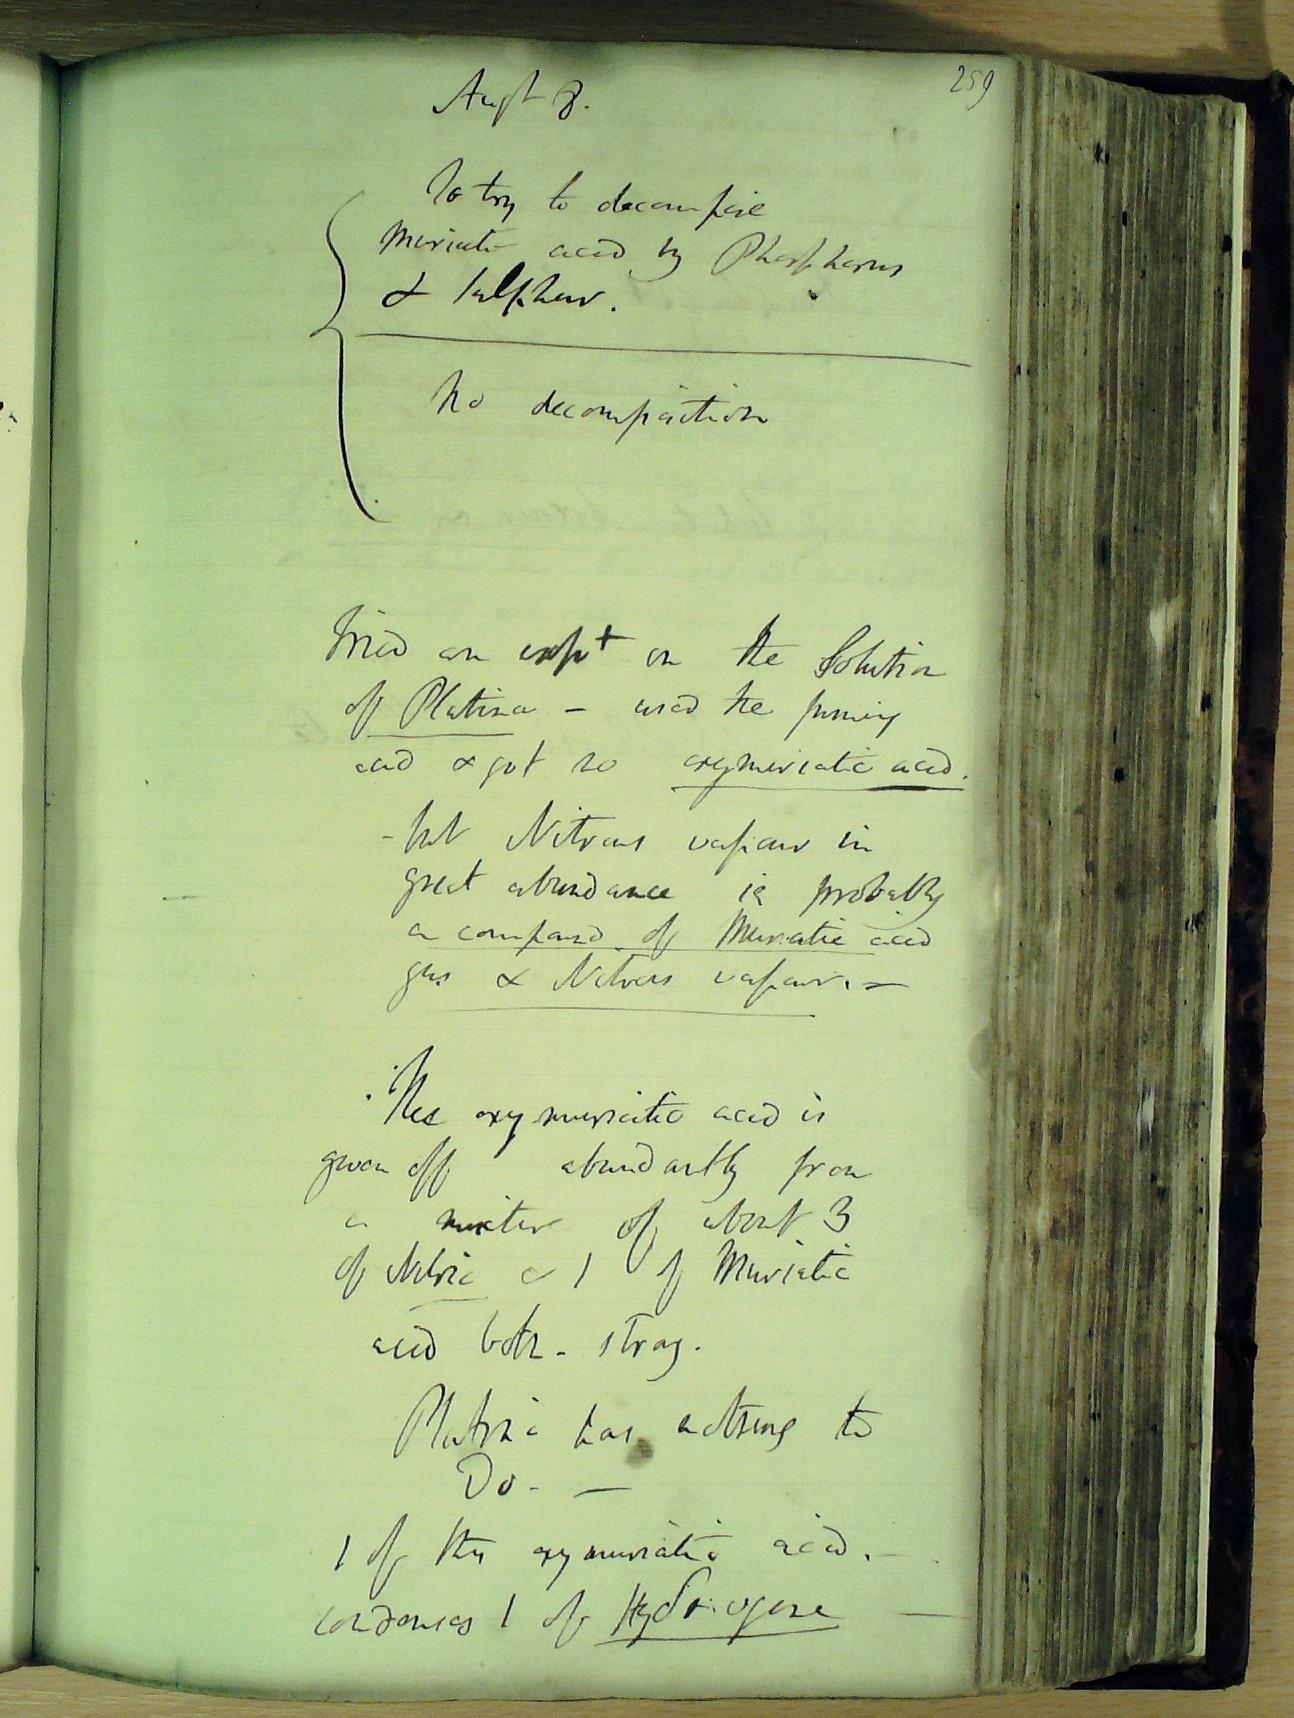 259
Augt 8.
To try to decompose
Muriatic acid by Phosphorus
& Sulphur.
No decomposition
Tried an expt on the Solution
of Platina – used the fuming
acid & got no oxymuriatic acid.
- but Nitrous vapour in
great abundance is probably
a compound of Muriatic acid
gas & Nitrous vapour. –
The oxymuriatic acid is
given off abundantly from
a mixture of about 3
of Nitric & 1 of Muriatic
acid both - strong.
Platina has nothing to
Do. —
1 of this oxymuriatic acid. –
condenses 1 of Hydrogene —